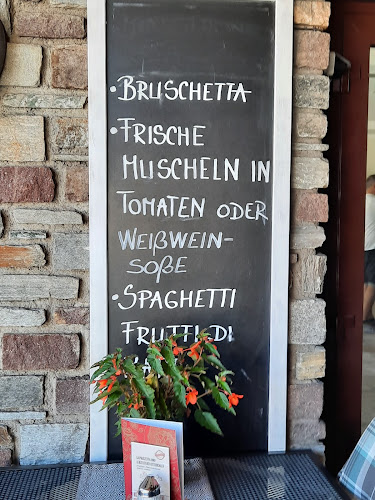 · BRUSCHETTA
· FRISCHE
MUSCHELN IN
TOMATEN ODER
WEIßWEIN-
SOßE
· SPAGHETTI
FRUTTI DI